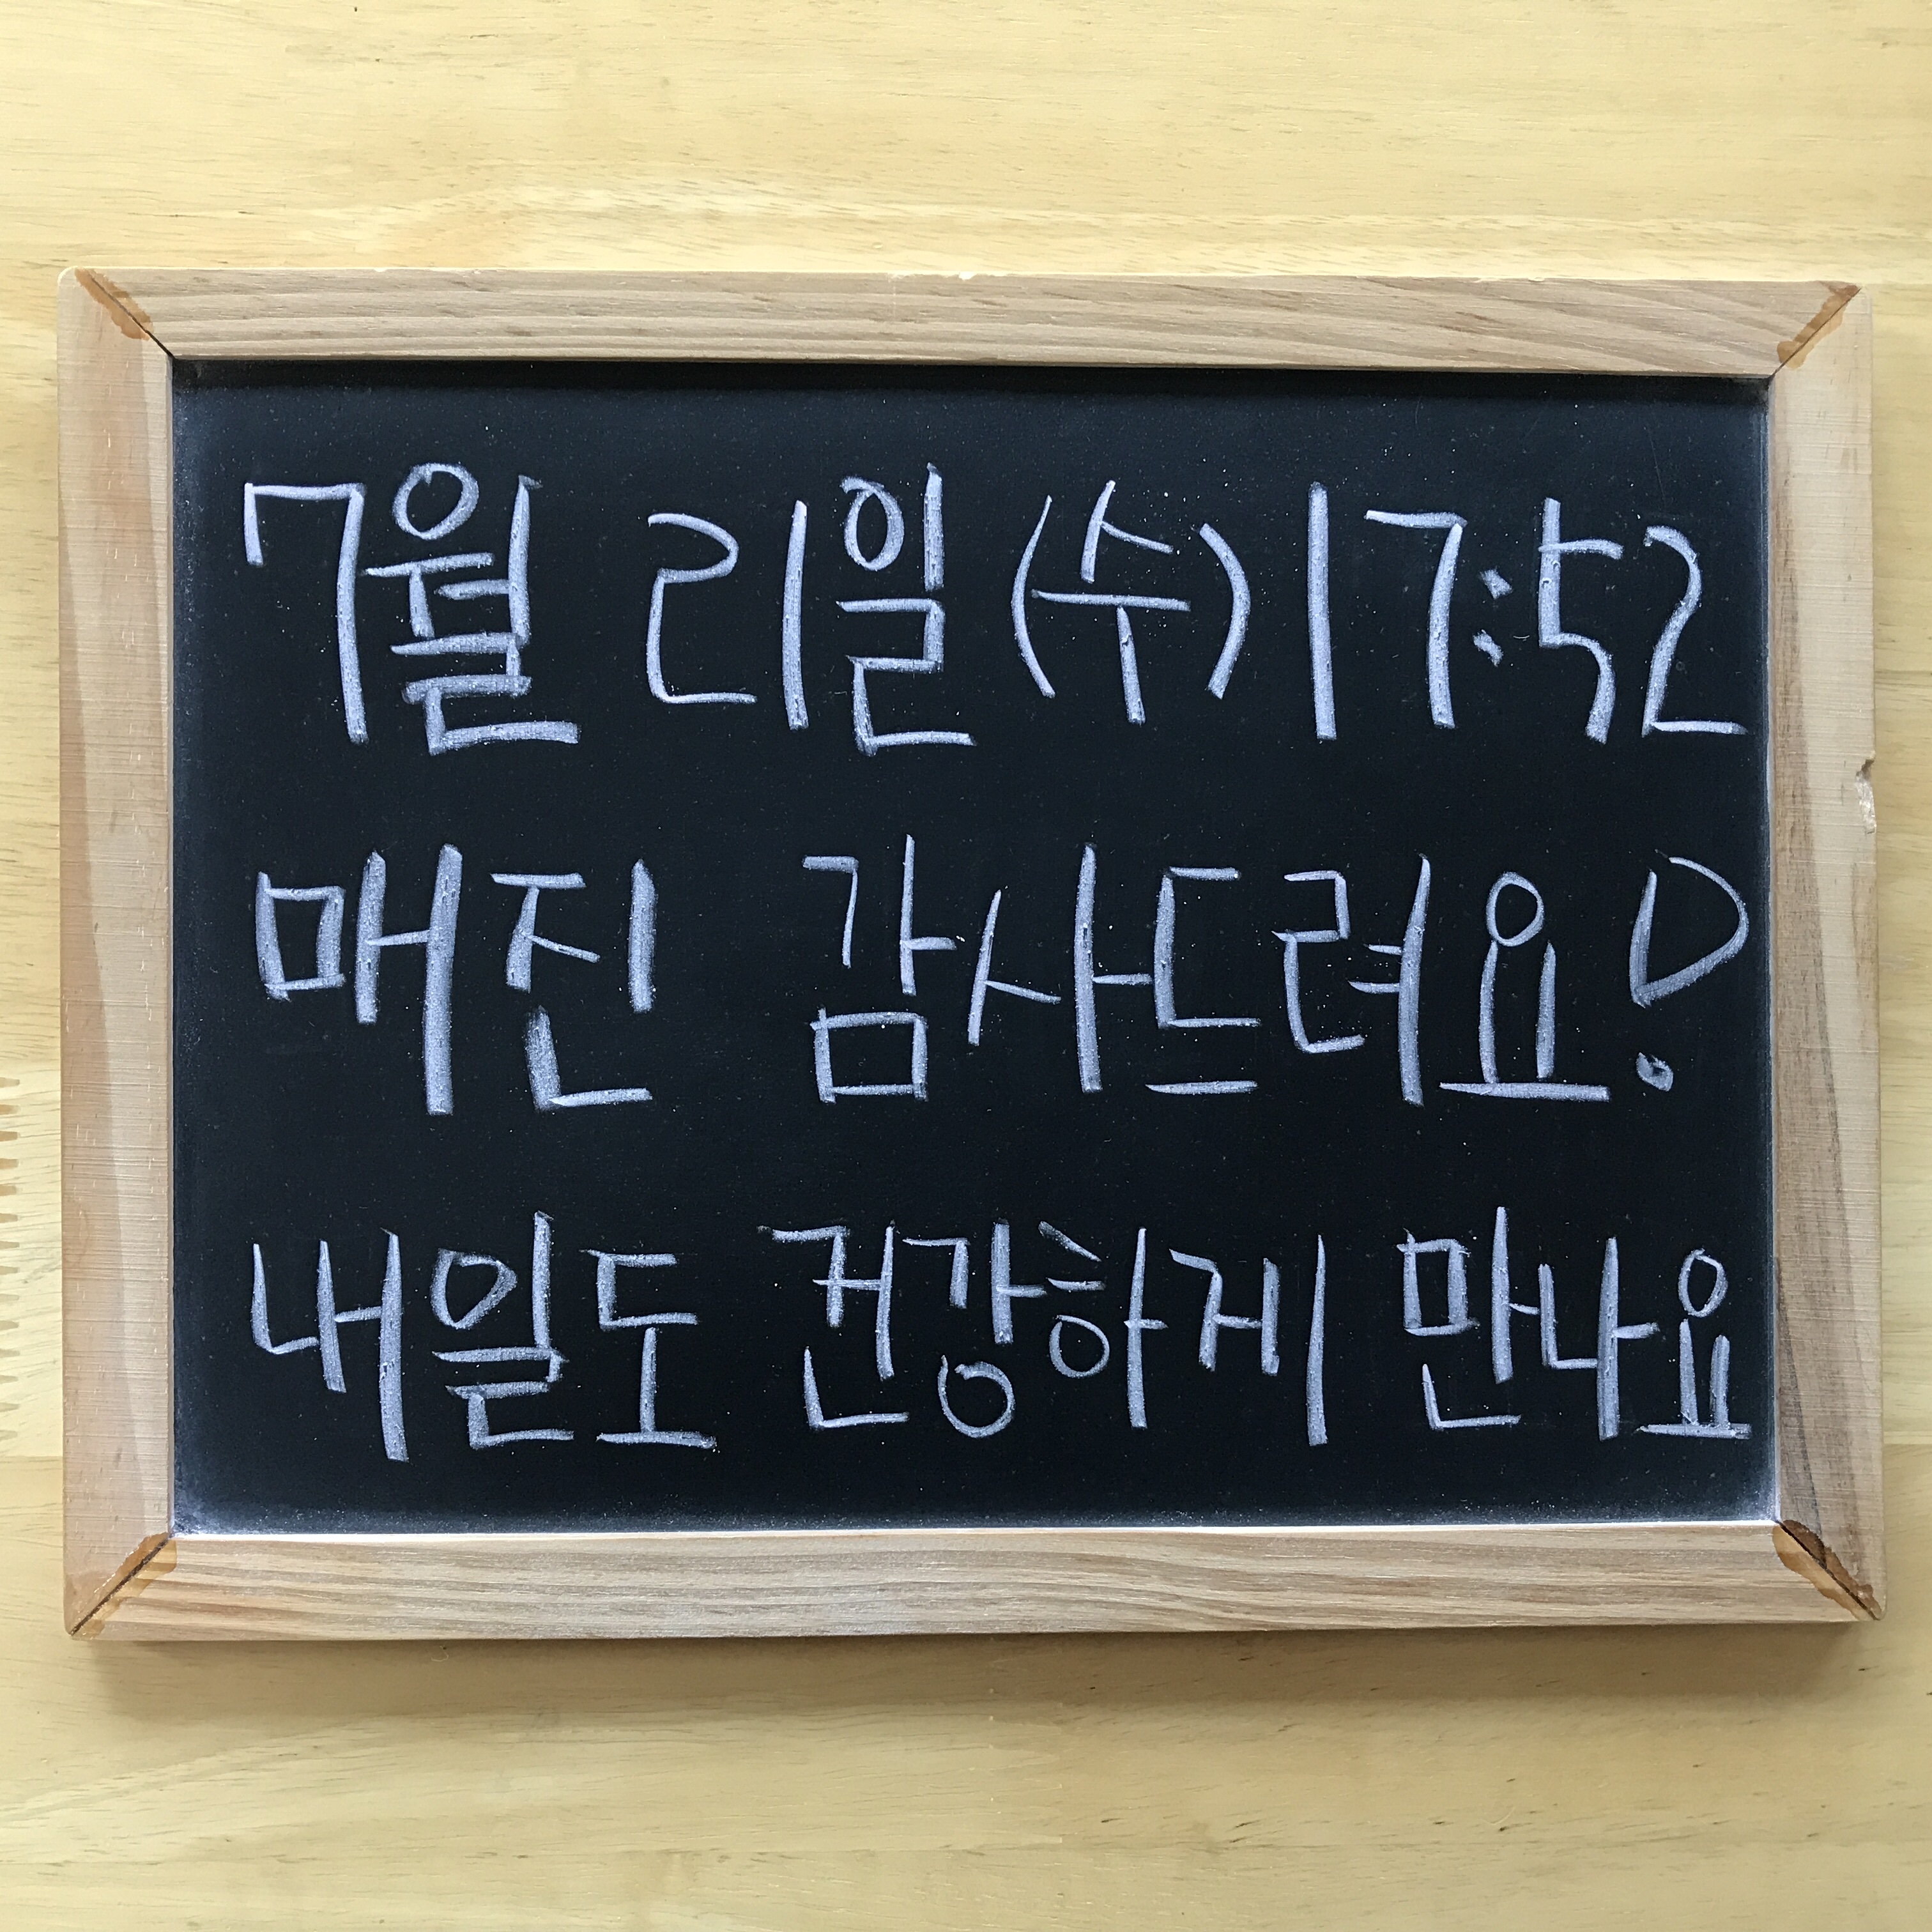 7월 21일(수) 17:52
매진 감사드려요!
내일도 건강하게 만나요